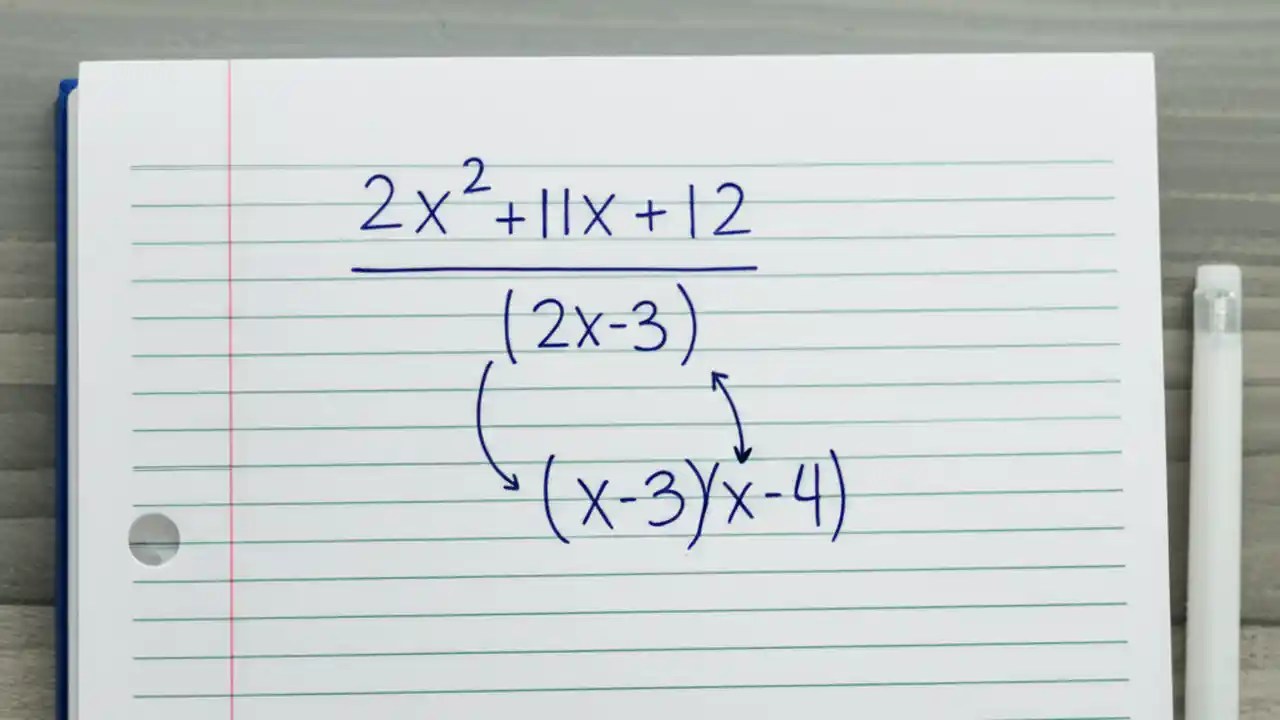 2x² + 11x + 12
(2x - 3)
(x - 3)(x - 4)